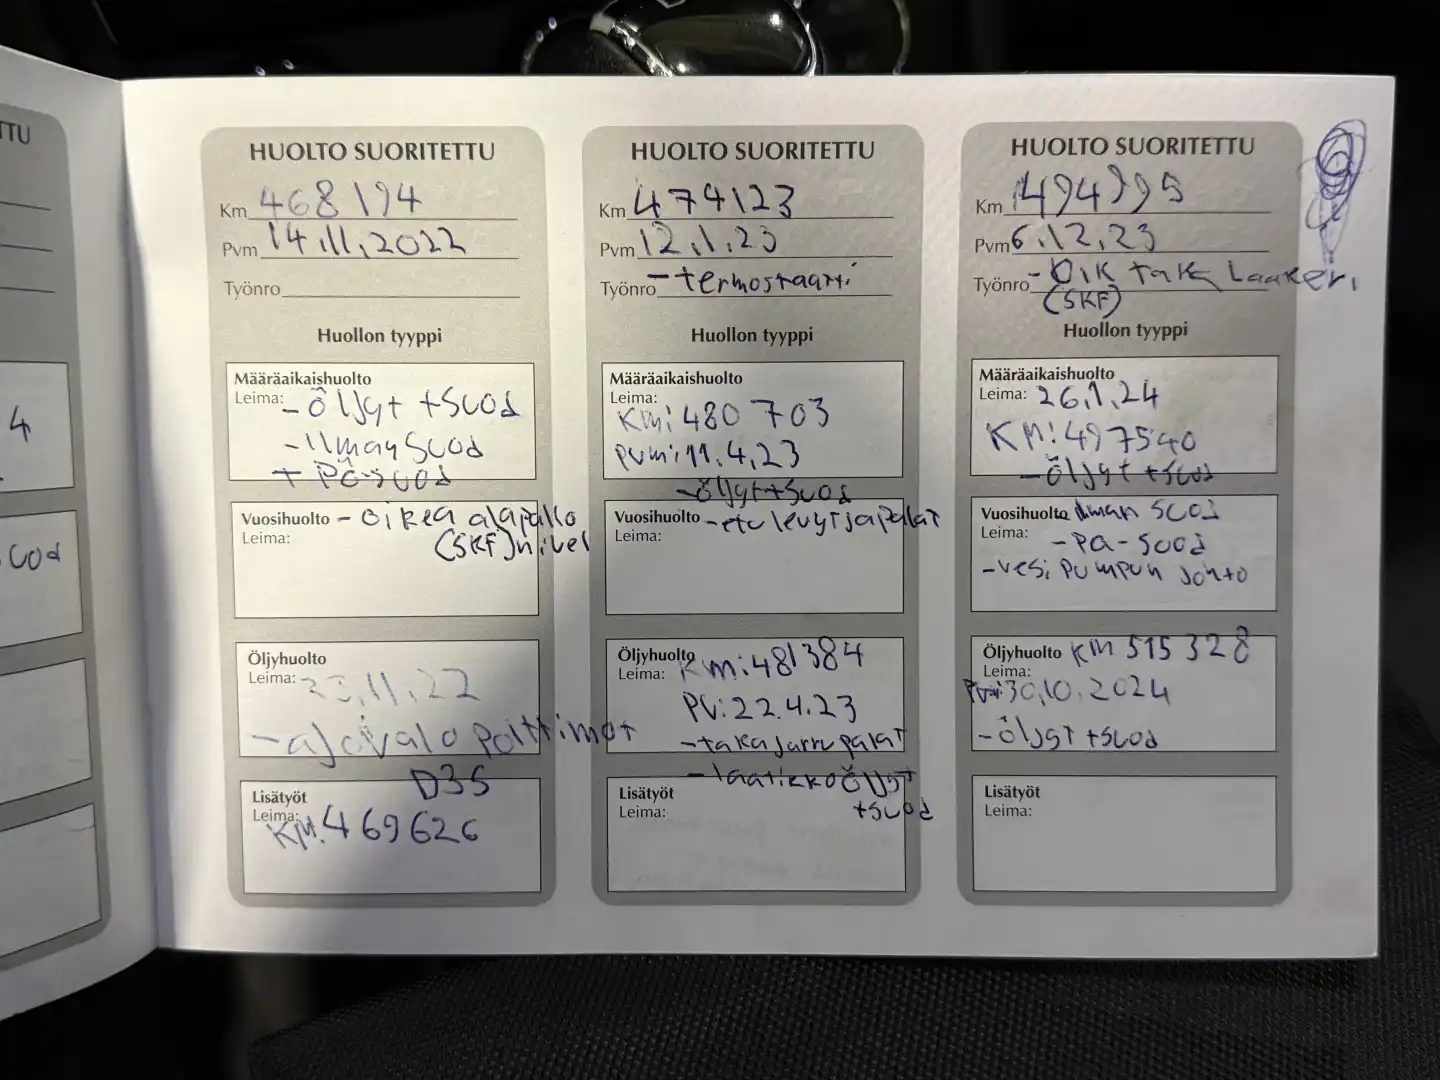 TTU
4
suod
HUOLTO SUORITETTU
Km 468 194
Pvm 14.11.2022
Työnro
Huollon tyyppi
Määräaikaishuolto
Leima: -öljyt +suod
-ilmansuod
+ PA-suod
Vuosihuolto - oikea alapallo
Leima: (SKF) nivel
Öljyhuolto
Leima: 23.11.22
-ajovalo polttimot
D3S
Lisätyöt
Leima:
KM: 469626
HUOLTO SUORITETTU
Km 474123
Pvm 12.1.23
Työnro -termostaatti
Huollon tyyppi
Määräaikaishuolto
Leima:
KM: 480 703
pvm: 11.4.23
-öljyt+suod
Vuosihuolto -etu levyt ja palat
Leima:
Öljyhuolto Km: 481384
Leima:
PV: 22.4.23
-taka jarru palat
-laatikkoöljyt
+suod
Lisätyöt
Leima:
HUOLTO SUORITETTU
Km 494995
Pvm 6.12.23
Työnro - Oik taka Laakeri
(SKF)
Huollon tyyppi
Määräaikaishuolto
Leima: 26.1.24
KM: 497540
-öljyt +suod
Vuosihuolto ilman suod
Leima: -PA-suod
-vesi pumpun johto
Öljyhuolto KM 515 328
Leima:
Pvm: 30.10.2024
-öljyt +suod
Lisätyöt
Leima: